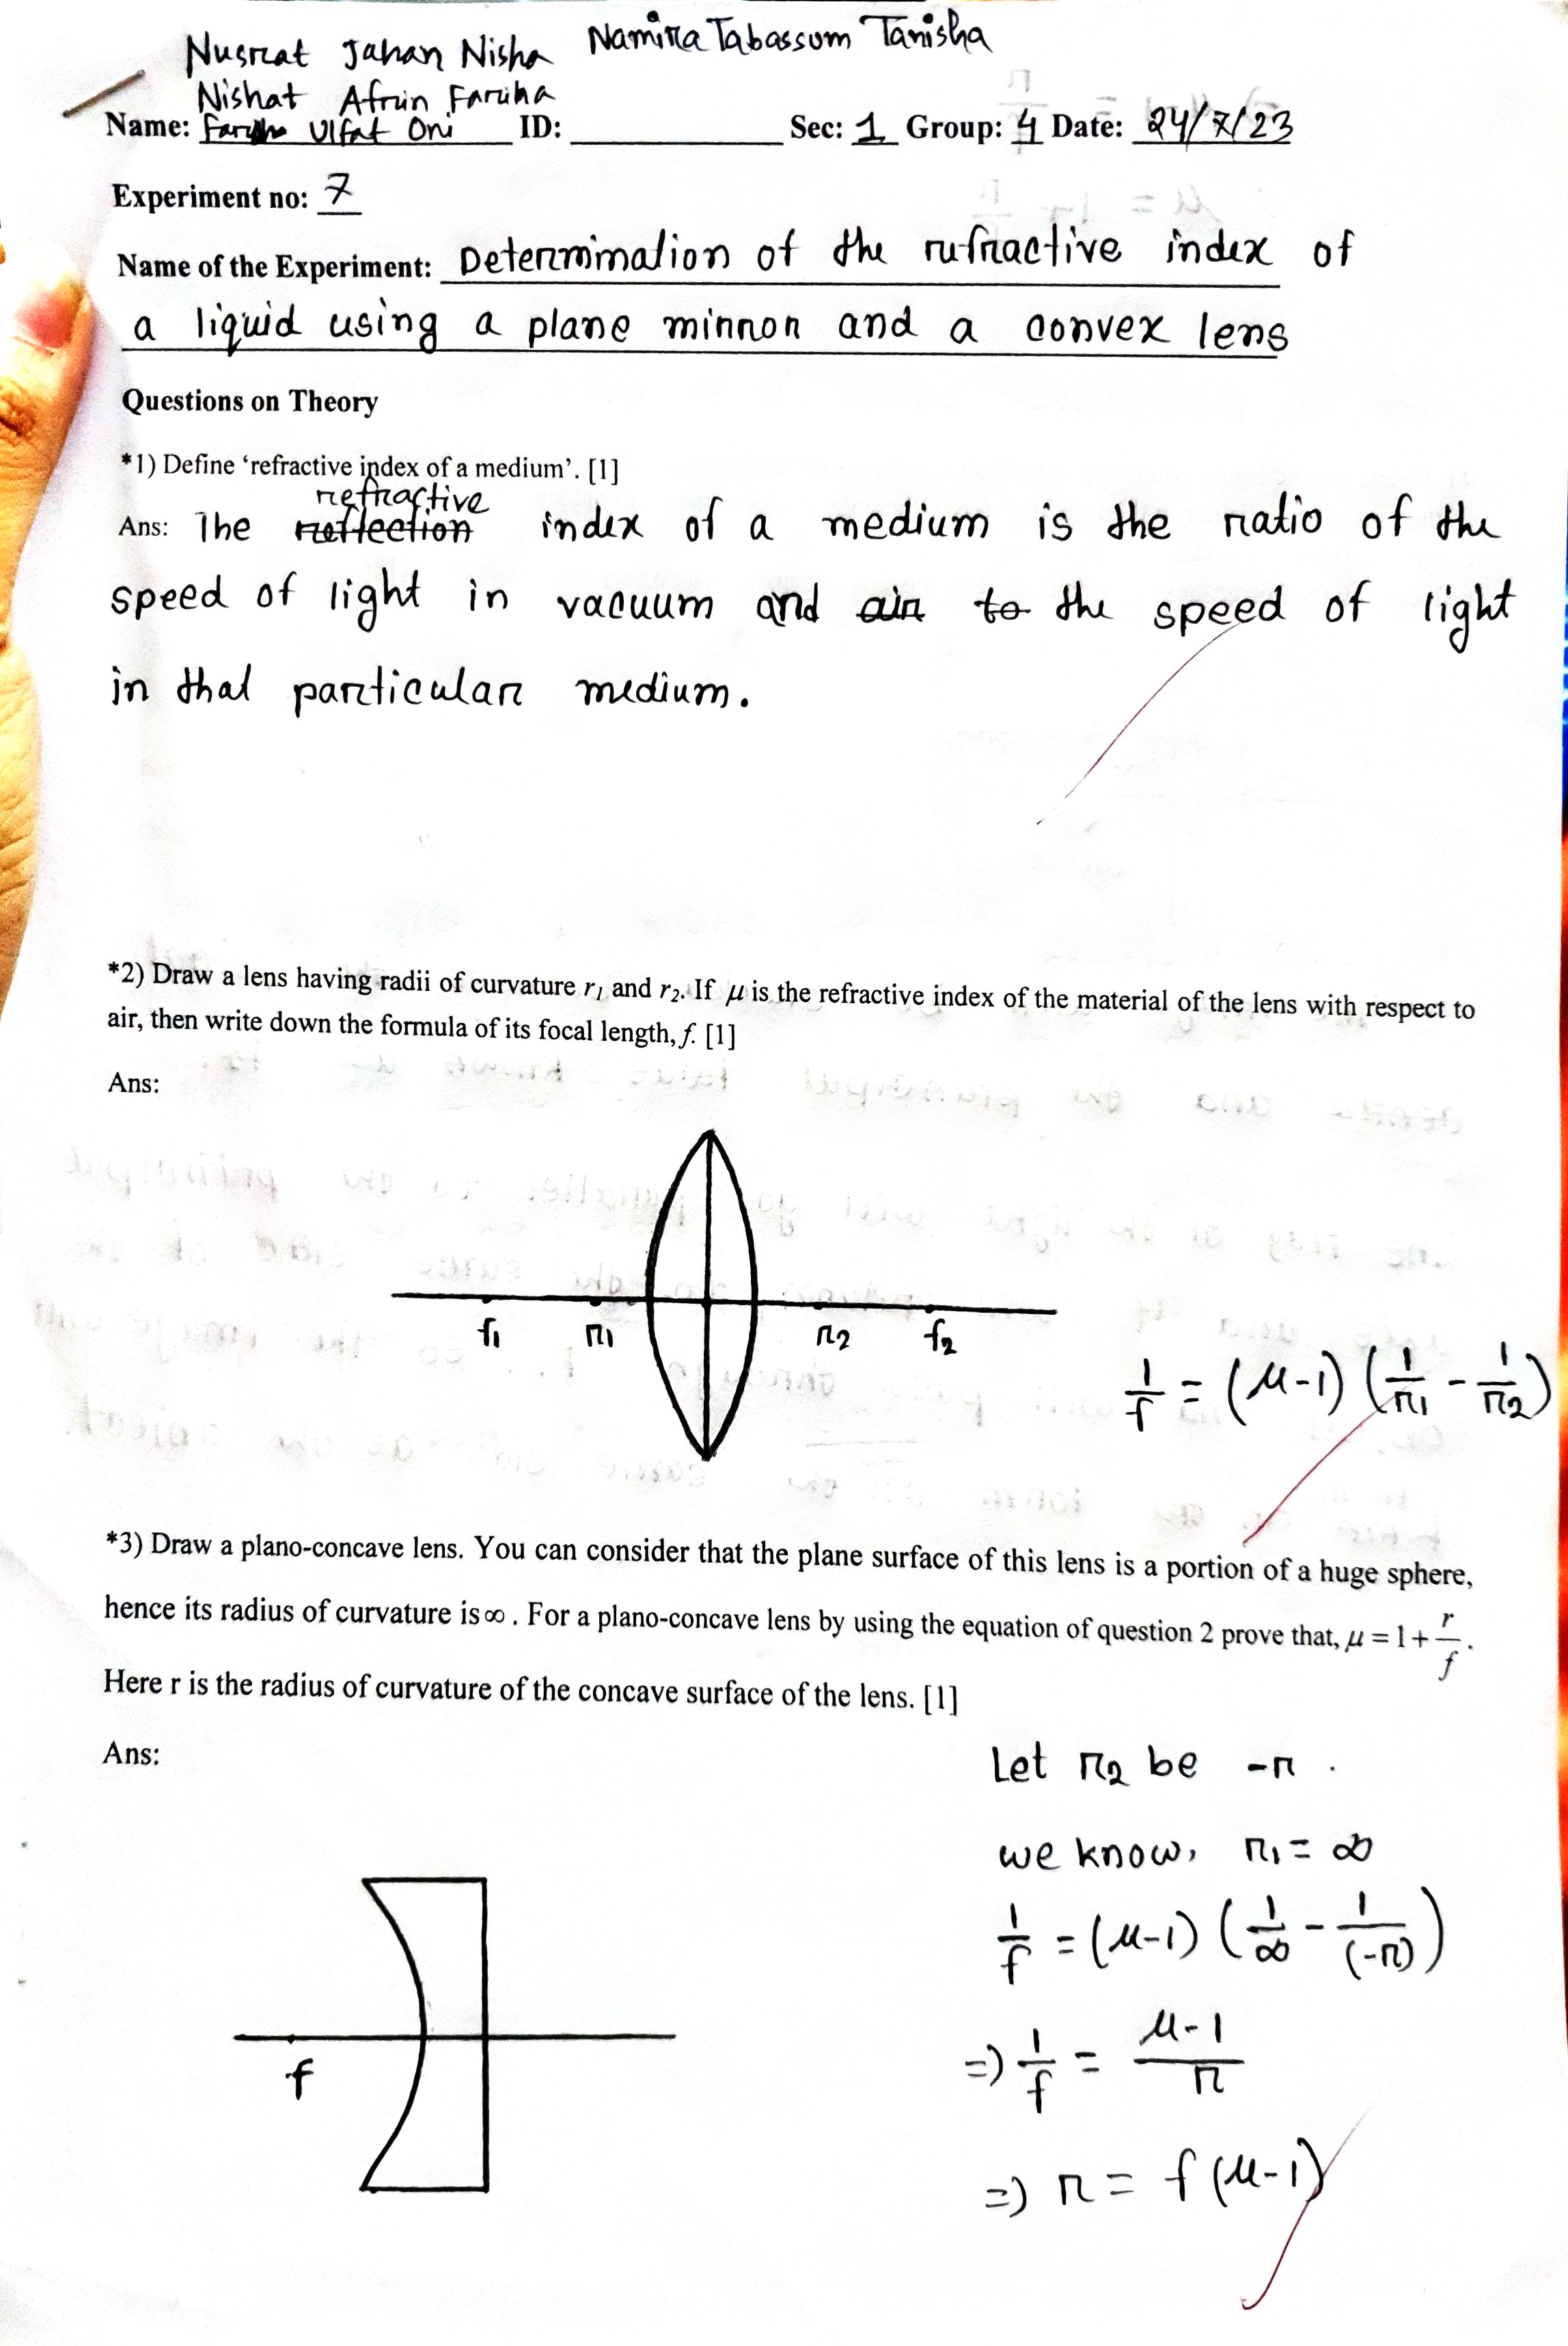 Nusrat Jahan Nisha Namira Tabassum Tanisha
Nishat Afrin Fariha
Name: Ulfat Oni ID: Sec: 1 Group: 4 Date: 24/7/23
Experiment no: 7
Name of the Experiment: Determination of the rufractive index of
a liquid using a plane mirror and a convex lens
Questions on Theory
*1) Define ‘refractive index of a medium’. [1]
refractive
Ans: The reflection index of a medium is the ratio of the
speed of light in vacuum and air to the speed of light
in that particular medium.
*2) Draw a lens having radii of curvature r₁ and r₂. If μ is the refractive index of the material of the lens with respect to
air, then write down the formula of its focal length, f. [1]
Ans:
f₁ r₁ r₂ f₂
1/f = (μ-1) (1/r₁ - 1/r₂)
*3) Draw a plano-concave lens. You can consider that the plane surface of this lens is a portion of a huge sphere,
hence its radius of curvature is ∞. For a plano-concave lens by using the equation of question 2 prove that, μ = 1 + r/f.
Here r is the radius of curvature of the concave surface of the lens. [1]
Ans:
Let r₂ be -r.
we know, r₁ = ∞
1/f = (μ-1) (1/∞ - 1/(-r))
=> 1/f = μ-1/r
f
=> r = f(μ-1)